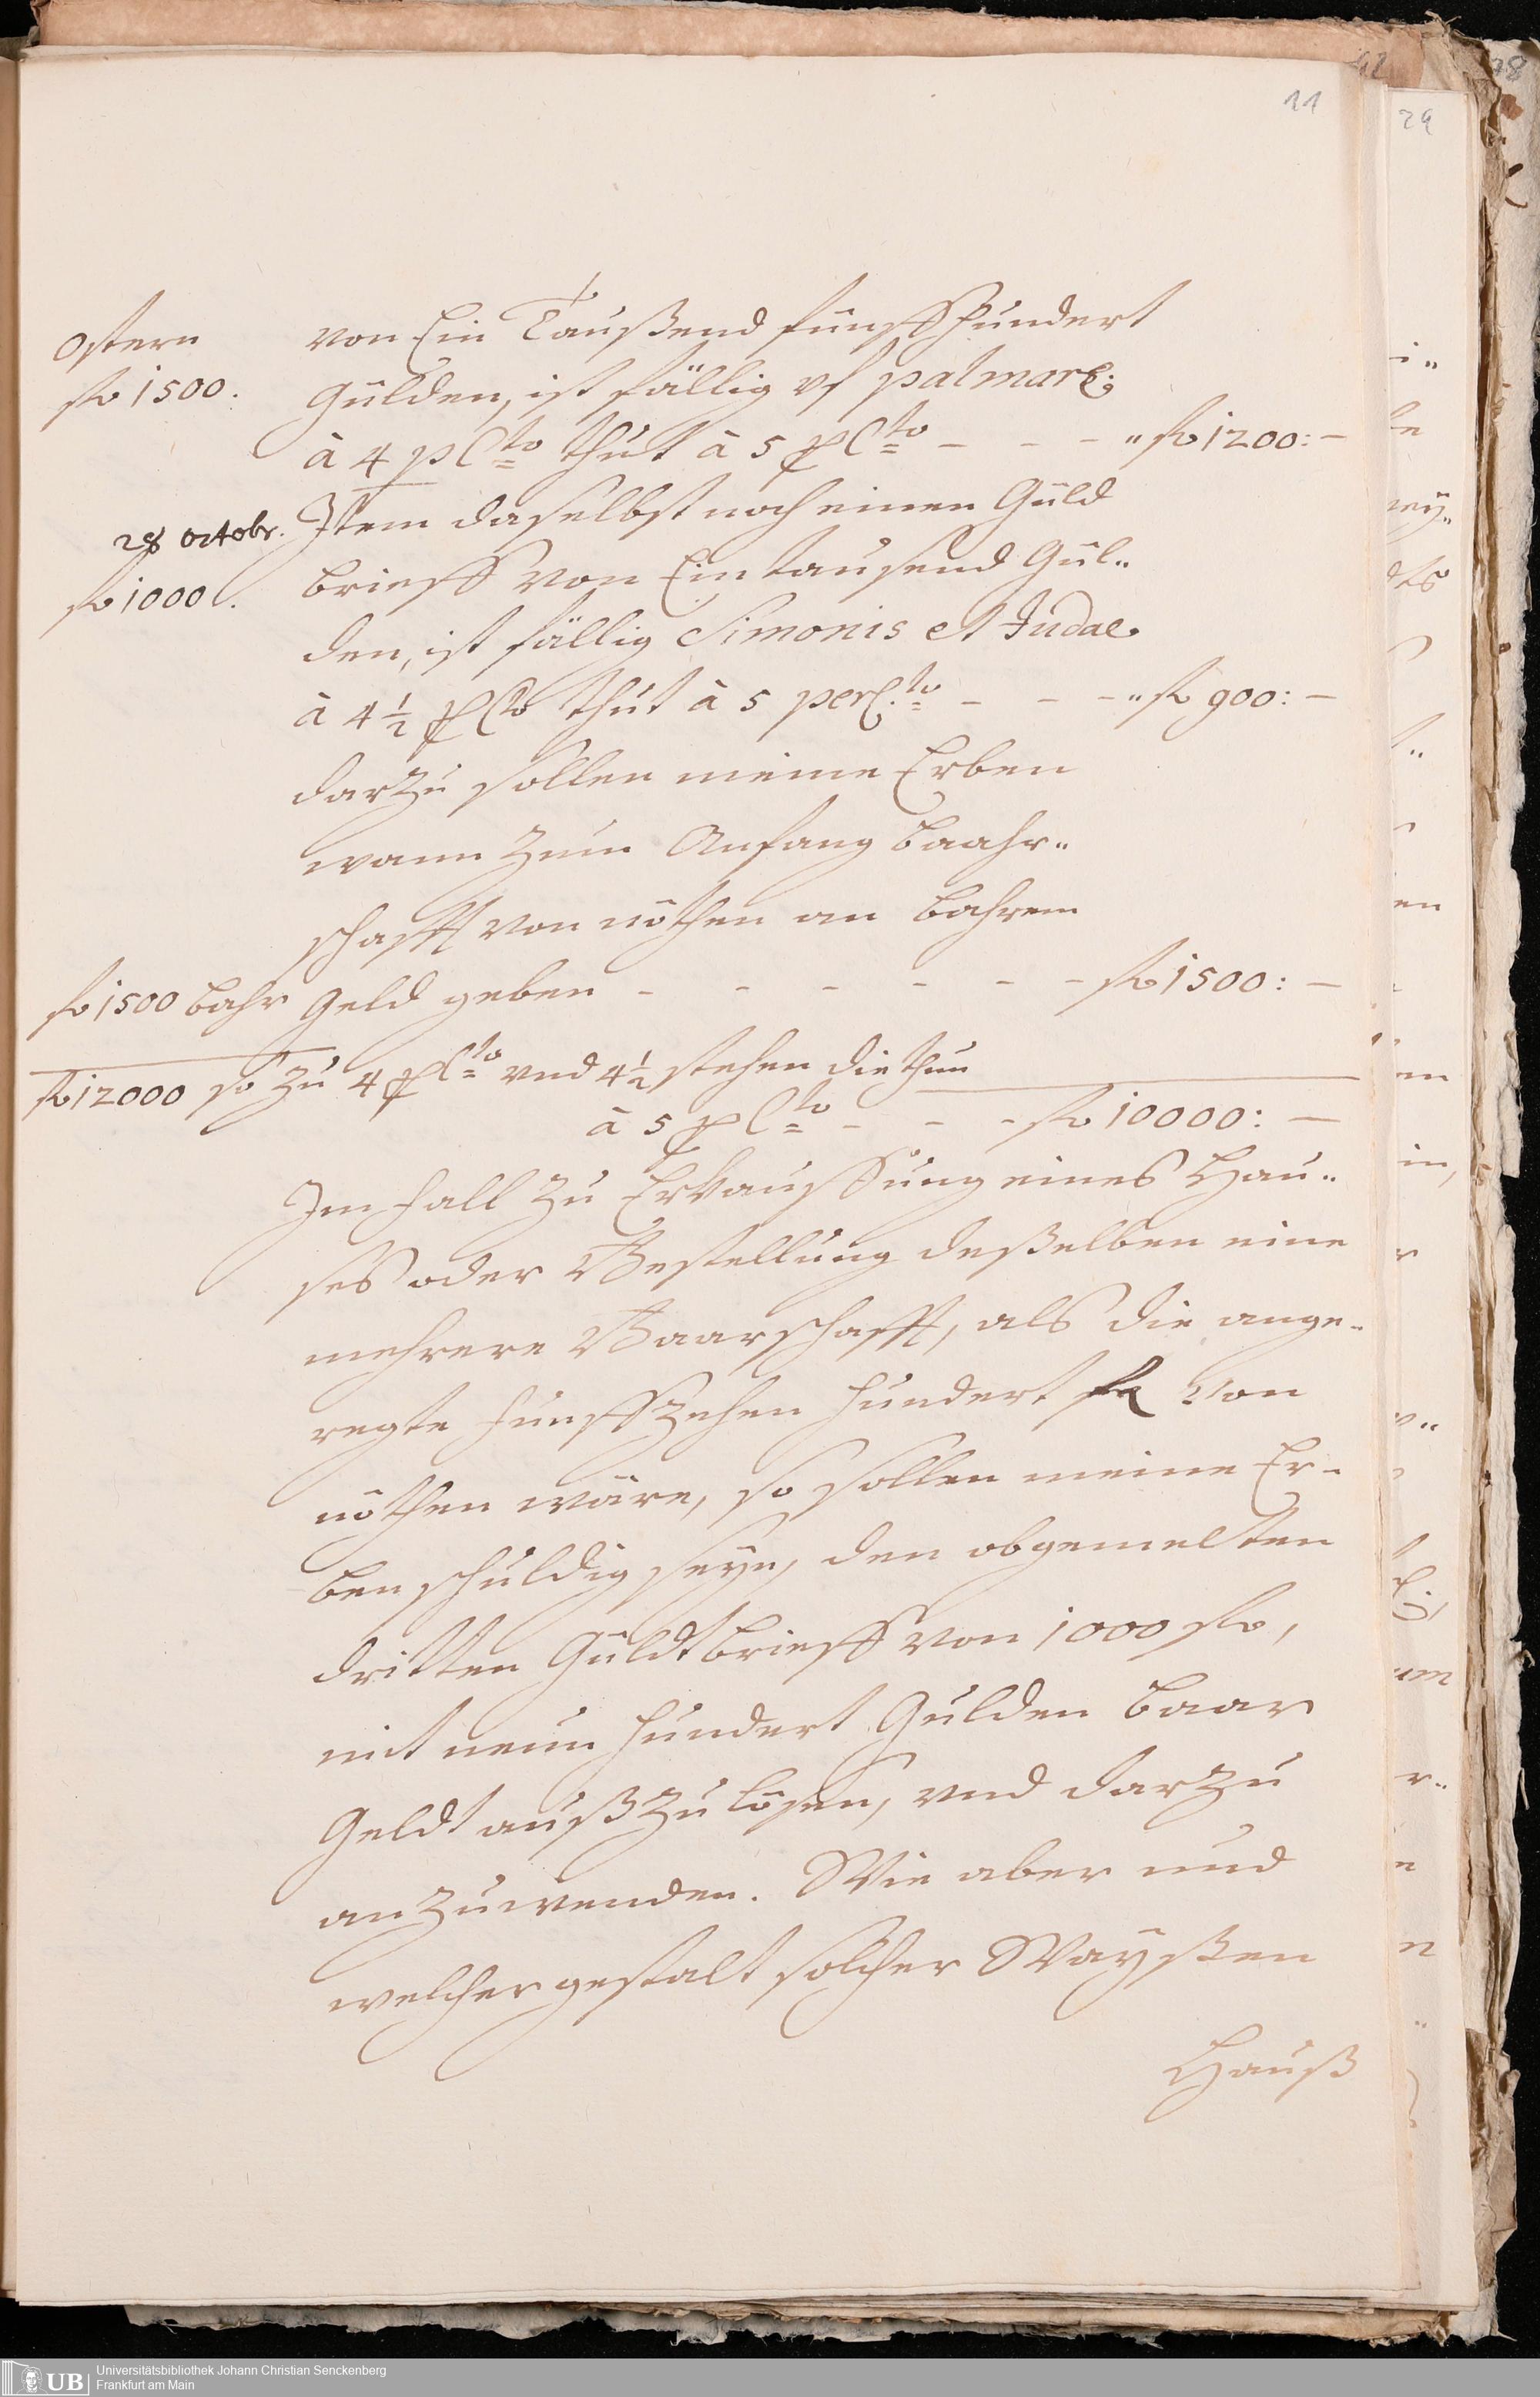 11
29
Ostern
von Ein Taußend fünffhundert
fl 1500.
Gülden, ist fällig vf palmar.
à 4 p Cto thut à 5 p Cto - - - " fl 1200: -
28 octobr.
Item daselbst noch einen Güld
brieff von Ein tausend Gül"
fl 1000.
den, ist fällig Simonis et Judae
à 4½ p Cto thut à 5 per C.to - - - " fl 900: -
darzu sollen meine Erben
wann zum Anfang baahr"
schafft von nöthen an bahrem
fl 1500 bahr Geld geben - - - - - - fl 1500: -
fl 12000 so zu 4 p Cto vnd 4½ stehen die thun
à 5 p Cto - - - fl 10000: -
Im fall zu Erkauffung eines Hau"
ses oder Bestellung deßelben eine
mehrere Baarschafft, als die ange-
regte funffzehen hundert fl von
nöthen wäre, so sollen meine Er-
ben schuldig seyn, den obgemelten
dritten Güldtbrieff von 1000 fl,
mit neun hundert Gulden baar
Geldt außzulösen, vnd darzu
anzuwenden. Wie aber und
welcher gestalt solcher Wayßen
Hauß
UB
Universitätsbibliothek Johann Christian Senckenberg
Frankfurt am Main